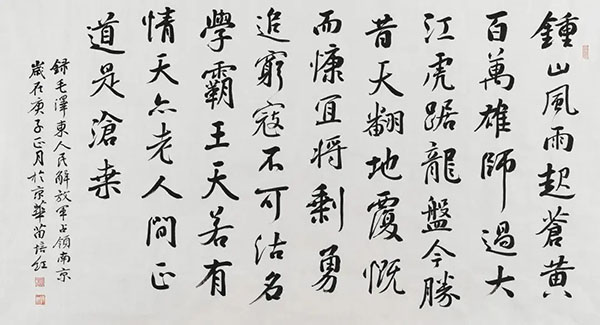 鍾山風雨起蒼黃
百萬雄師過大
江虎踞龍盤今勝
昔天翻地覆慨
而慷宜將剩勇
追窮寇不可沽名
學霸王天若有
情天亦老人間正
道是滄桑
錄毛澤東人民解放軍占領南京
歲在庚子正月於京華苗培紅